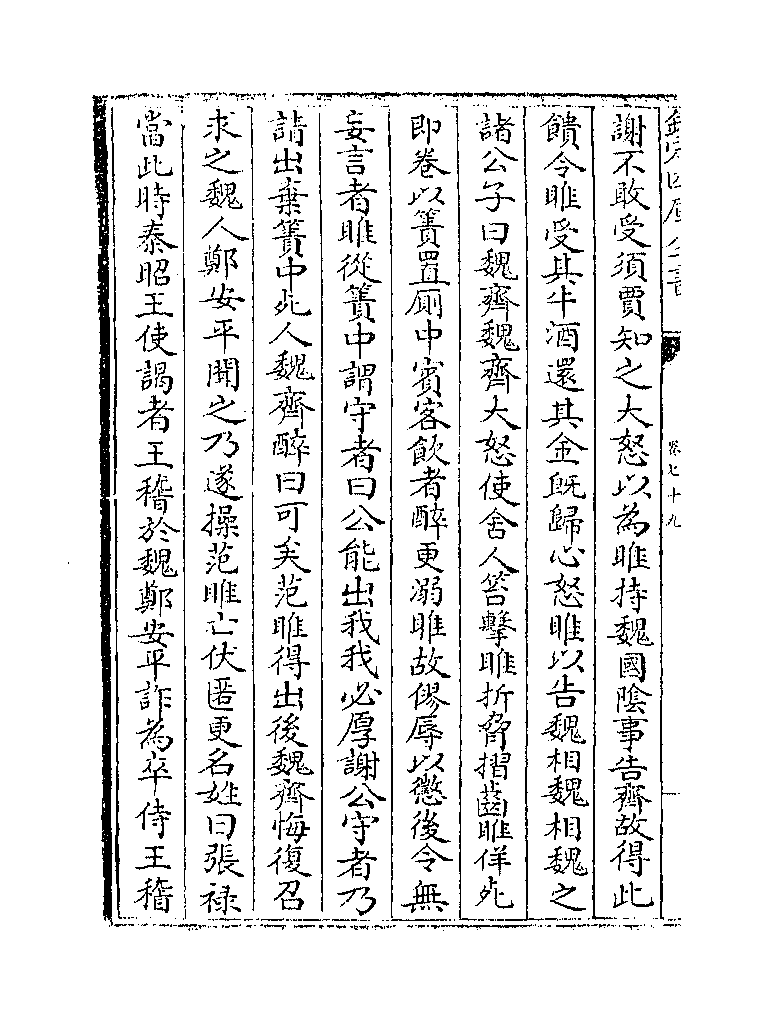 欽定四庫全書
卷七十九
謝不敢受須賈知之大怒以為睢持魏國隂事告齊故得此
饋令睢受其牛酒還其金既歸心怒睢以告魏相魏相魏之
諸公子曰魏齊魏齊大怒使舍人笞擊睢折脅摺齒睢佯死
即卷以簀置厠中賓客飲者醉更溺睢故僇辱以懲後令無
妄言者睢從簀中謂守者曰公能出我我必厚謝公守者乃
請出棄簀中死人魏齊醉曰可矣范睢得出後魏齊悔復召
求之魏人鄭安平聞之乃遂操范睢亡伏匿更名姓曰張禄
當此時秦昭王使謁者王稽於魏鄭安平詐為卒侍王稽